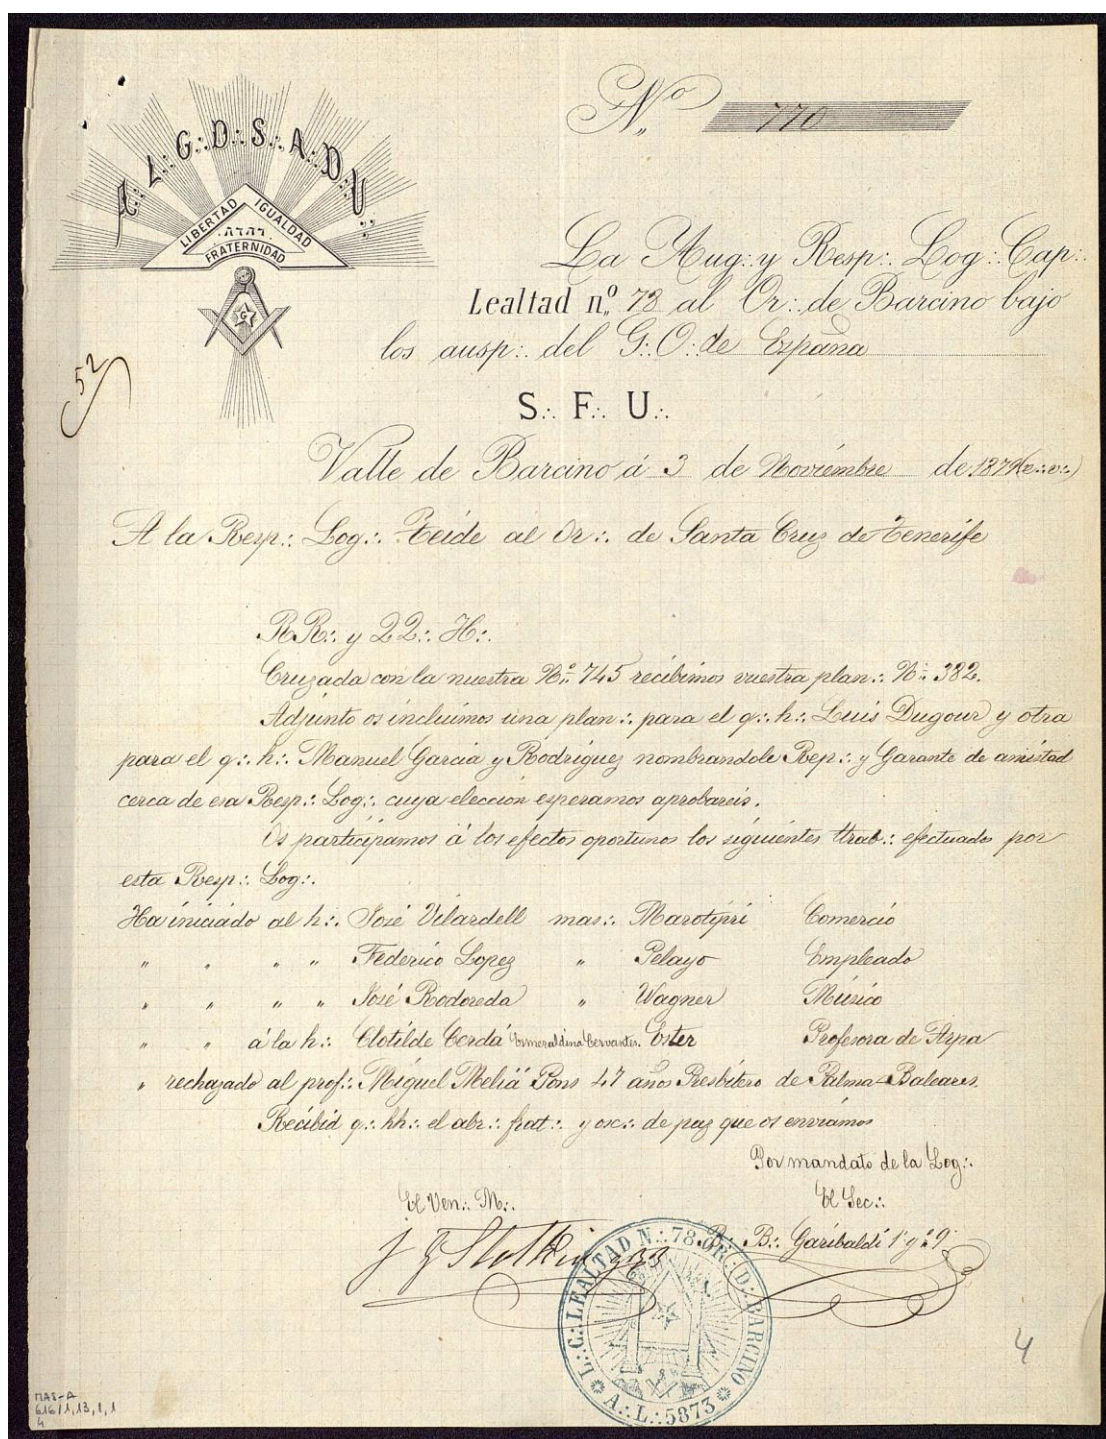 A.·. L.·. G.·. D.·. S.·. A.·. D.·. U.·.
LIBERTAD IGUALDAD
FRATERNIDAD
G
Nº 770
52
La Aug.·. y Resp.·. Log.·. Cap.·.
Lealtad nº 78 al Or.·. de Barcino bajo
los ausp.·. del G.·. O.·. de España
S.·. F.·. U.·.
Valle de Barcino á 3 de Noviembre de 1879 (e.·. v.·.)
A la Resp.·. Log.·. Teide al Or.·. de Santa Cruz de Tenerife
RR.·. y QQ.·. H.·.
Cruzada con la nuestra Nº 745 recibimos vuestra plan.·. Nº 382.
Adjunto os incluimos una plan.·. para el q.·. h.·. Luis Dugour y otra
para el q.·. h.·. Manuel Garcia y Rodriguez nombrandole Rep.·. y Garante de amistad
cerca de esa Resp.·. Log.·. cuya eleccion esperamos aprobareis.
Os participamos á los efectos oportunos los siguientes trab.·. efectuados por
esta Resp.·. Log.·.
Ha iniciado al h.·. José Vilardell mas.·. Comercio
" " " " Federico Lopez " Pelayo Empleado
" " " " José Rodoreda " Wagner Músico
" " á la h.·. Clotilde Cerdá Esmeraldina Cervantes. Ester Profesora de Arpa
" rechazado al prof.·. Miguel Meliá Pons 47 años Presbitero de Palma-Baleares.
Recibid q.·. hh.·. el abr.·. frat.·. y osc.·. de paz que os enviamos
Por mandato de la Log.·.
El Ven.·. M.·. El Sec.·.
B.·. B.·. Garibaldi 1º gº 9º
L.·. C.·. LEALTAD N.·. 78. OR.·. D.·. BARCINO
A.·. L.·. 5873
4
MAS-A
616/1,13,1,1
4